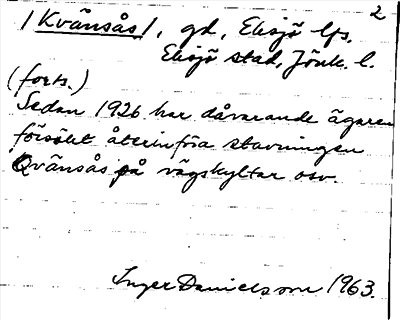 2
/Kvänsås/, gd, Eksjö lfs,
Eksjö stad, Jönk. l.
(forts.)
Sedan 1926 har dåvarande ägaren
försökt återinföra stavningen
Qvänsås på vägskyltar osv.
Inger Danielsson 1963.